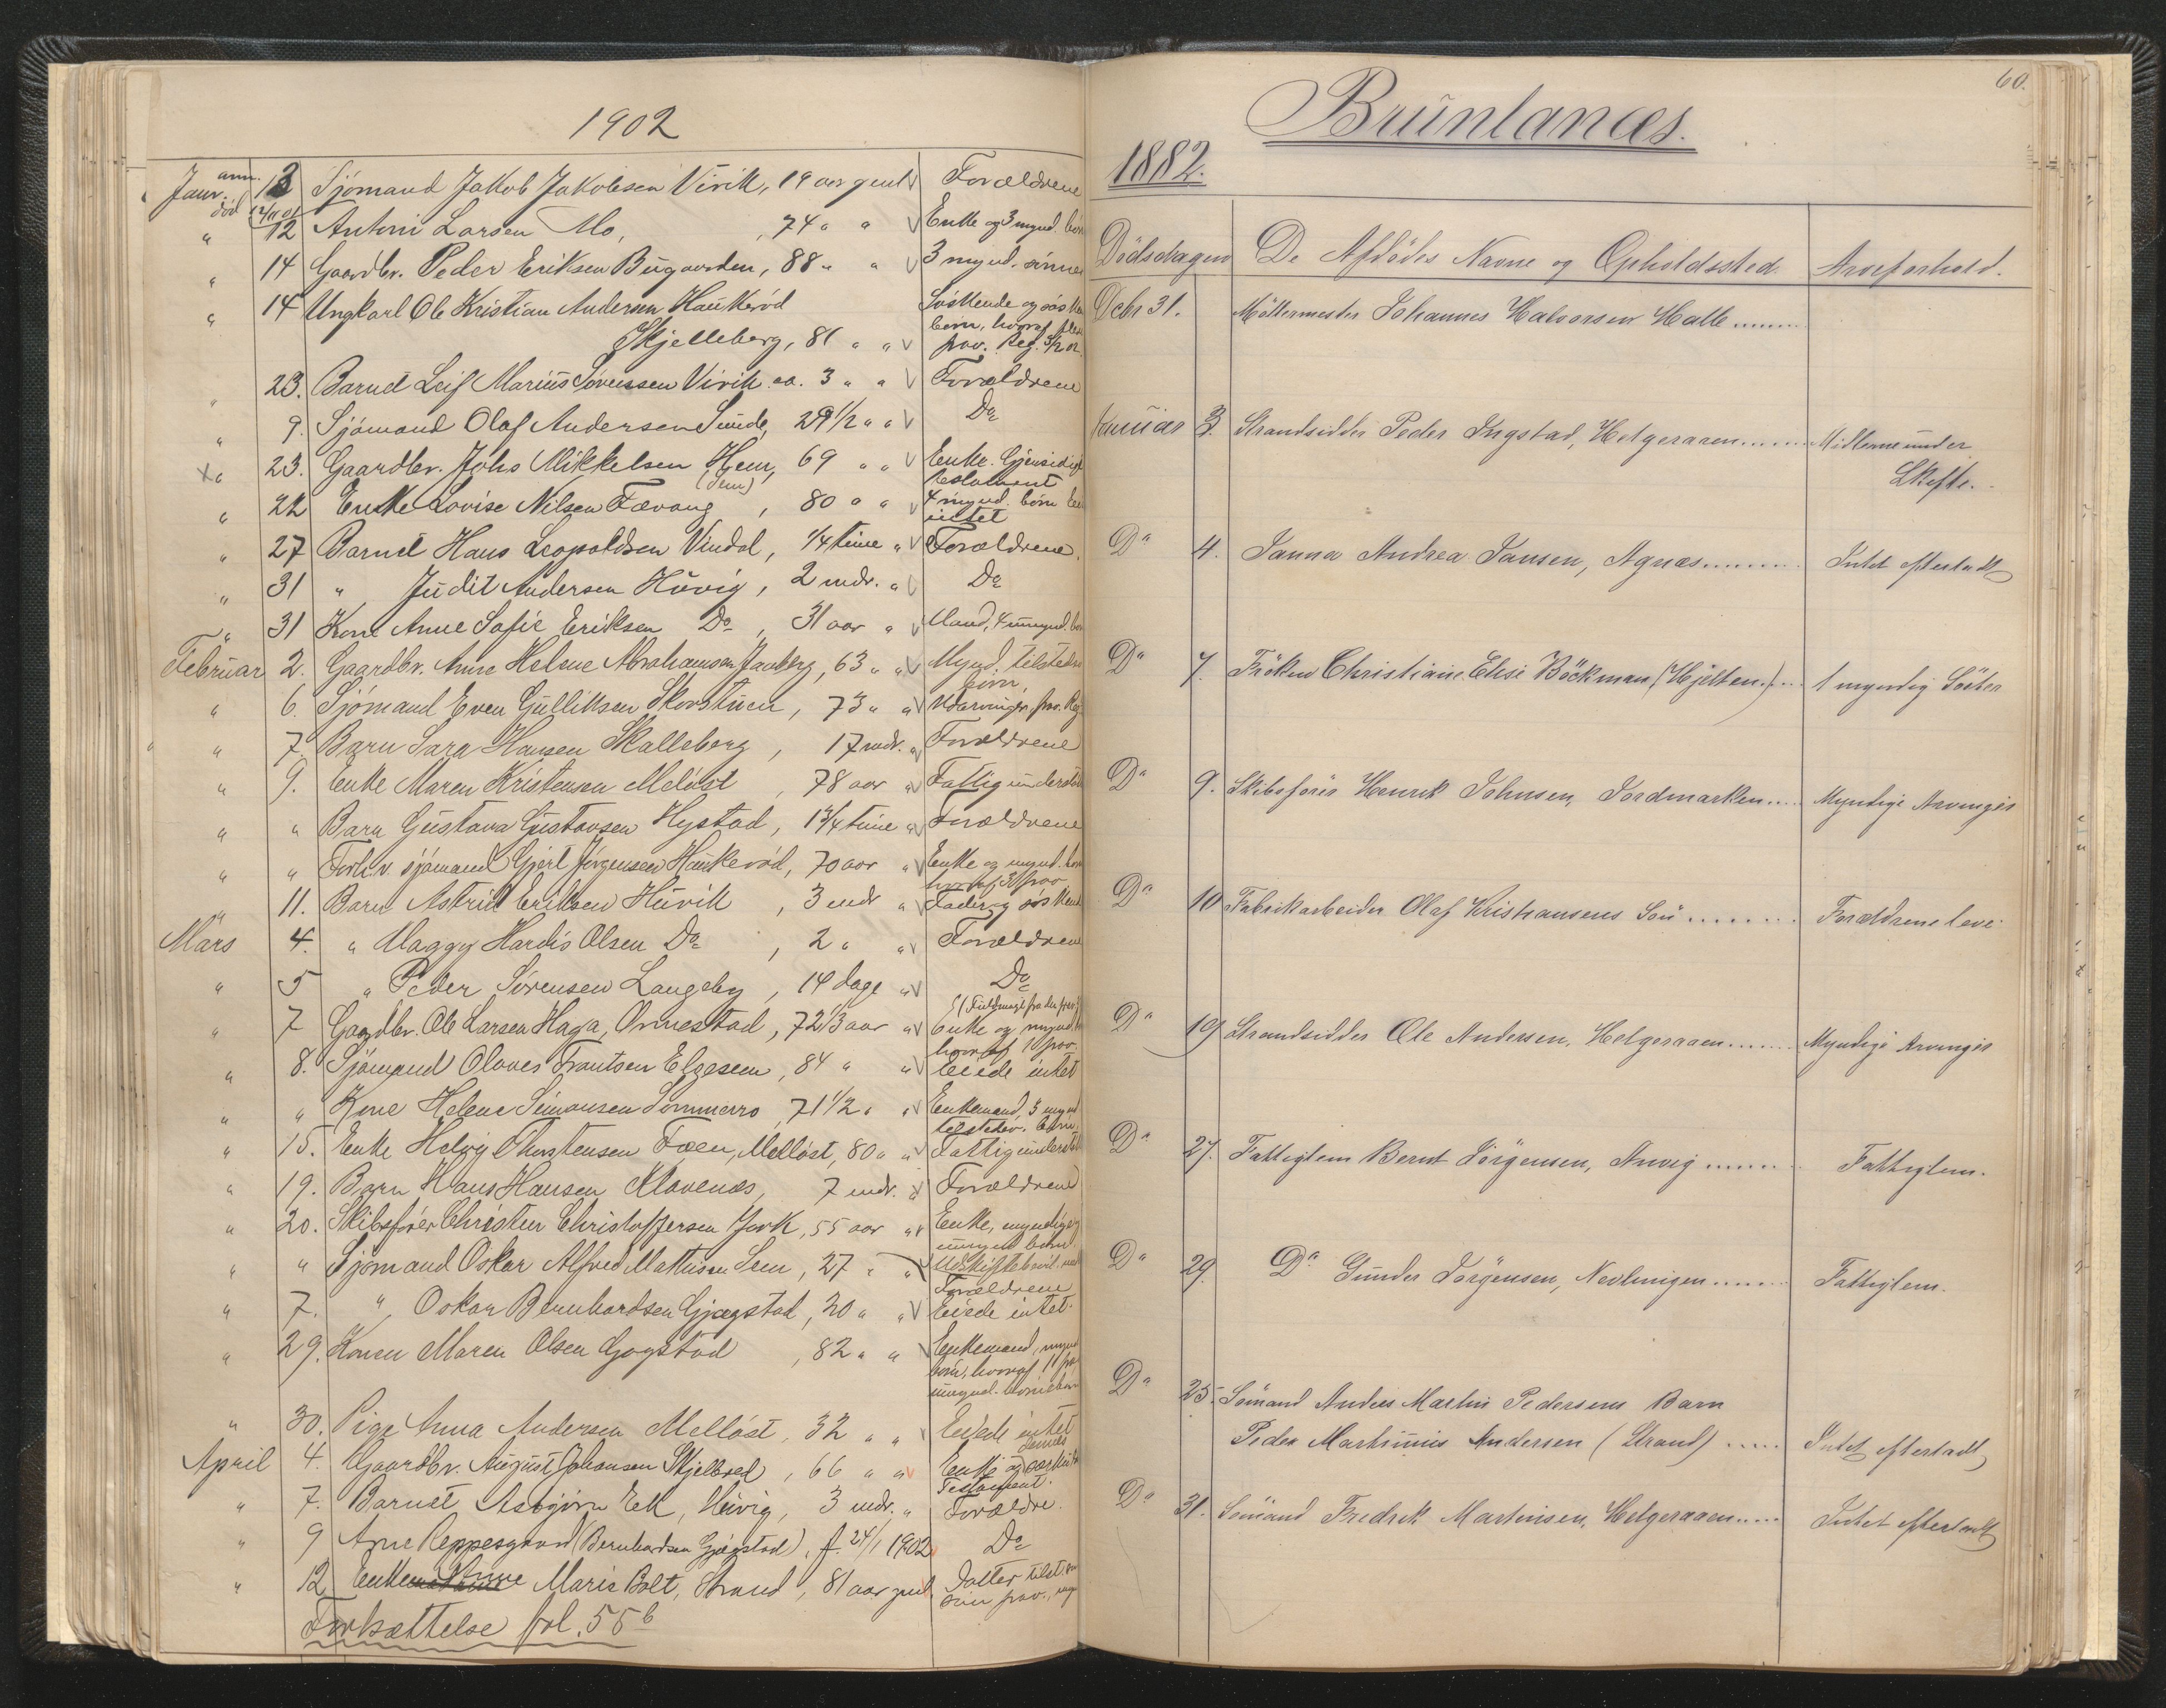 1902
Janr. anm. 13 Sjömand Jakob Jakobsen Virik, 19 aar gml. Forældrene
død 12/11 01
" 12 Antoni Larsen Mo, 74 " " Enke og 3 mynd. börn
" 14 Gaardbr. Peder Eriksen Bugaarden, 88 " " 3 mynd. sönner
" 14 Ungkarl Ole Kristian Andersen Haukeröd
Skjelleberg, 81 " "
23. Barnet Leif Marius Sörensen Virik ca. 3 " " Forældrene
" 9. Sjömand Olaf Andersen Sunde, 29 1/2 " " Do
" 23. Gaardbr. Johs Mikkelsen Hem, 69 " " Enke. Gjensidigt
(Sem) testament
" 22 Enke Lovise Nilsen Fævang, 80 " " 4 mynd. börn
intet
" 27 Barnet Hans Leopoldsen Vindal, 1/4 time " Forældrene.
" 31 " Judit Andersen Huvig, 2 mdr. " Do
" 31 Kone Anne Sofie Eriksen Do, 31 aar " Mand, 4 umynd.
Februar 2. Gaardbr. Anne Helene Abrahamsen Jauberg, 63 " " Mynd. tilstede
börn.
" 6. Sjömand Even Gulliksen Skorstuen, 73 " " Udarvinger frav.
" 7. Barn Sara Hansen Skalleberg, 17 mdr. " Forældrene
" 9. Enke Maren Kristensen Melöst, 78 aar " Fattigunderstöt
" " Barn Gustava Gustavsen Hystad, 1 3/4 time " Forældrene
" " Forh.v. sjömand Gjert Jörgensen Haukeröd, 70 aar " Enke og mynd.
hvoraf 3 frav
" 11. Barn Astrid Eriksen Huvik, 3 mdr " Fader og söskend
Mars 4. " Maggy Hardis Olsen Do, 2 " " Forældrene
" 5 " Peder Sörensen Langeby, 14 dage " Do
" 7 Gaardbr. Ole Larsen Haga, Ormestad, 72 1/3 aar " Enke og mynd
hvoraf 1 frav.
" 8. Sjömand Olaves Frantsen Elgesem, 84 " " Eiede intet
" " Kone Helene Simonsen Sommerro, 71 1/2 " " Enkemand, 3 mynd
tilstedev. börn.
" 15. Enke Helvig Thorstensen Foen, Mellöst, 80 " " Fattigunderstöt
" 19. Barn Hans Hansen Klavenæs, 7 mdr. " Forældrene
" 20. Skibsförer Christen Christoffersen York, 55 aar " Enke, myndige
umynd börn.
" " Sjömand Oskar Alfred Mathisen Sem, 27 " "
Forældrene
" 7. " Oskar Bernhardsen Gjægstad, 20 " " Eiede intet.
" 29. Konen Maren Olsen Gogstad, 82 " " Enkemand, mynd
börn, hvoraf 1
umynd.
" 30. Pige Anna Andersen Mellöst, 32 " " Eiede intet
April 4. Gaardbr. August Johansen Skjelbred, 66 " " Enke og
Testament.
" 7. Barnet Asbjörn Eek, Huvig, 3 mdr. " Forældre.
" 9 Arne Reppesgaard (Bernhardsen Gjægstad), f. 24/1 1902 Do
" 12 Enke Marie Bolt, Strand, 81 aar gml. Datter tilst.
frav.
Fortsættelse fol. 55 b
60.
Brunlanæs.
1882.
Dödsdagen De Afdödes Navne og Opholdssted. Arveforhold.
Decbr 31. Möllermester Johannes Halvorsen Halle ........
Januar 3. Strandsidder Peder Ingstad, Helgeraaen ...... Midlerne under
Skifte.
Do 4. Janna Andrea Jansen, Agnæs ........ Intet efterladt
Do 7. Fröken Christiane Elise Böckman (Hjelten.) ... 1 myndig Söster
Do 9. Skibsförer Henrik Johnsen, Jordmarken .... Myndige Arvinger
Do 10 Fabrikarbeider Olaf Kristiansens Sön ........ Forældrene leve.
Do 19 Strandsidder Ole Andersen, Helgeraaen ...... Myndige Arvinger
Do 27. Fattiglem Bernt Jörgensen, Anvig ....... Fattiglem.
Do 29. Do Gunder Jörgensen, Nevlungen ...... Fattiglem.
Do 25. Sömand Anders Martin Pedersens Barn
Peder Martinius Andersen (Strand) ..... Intet efterladt
Do 31. Sömand Fredrik Martinsen, Helgeraaen ..... Intet efterladt